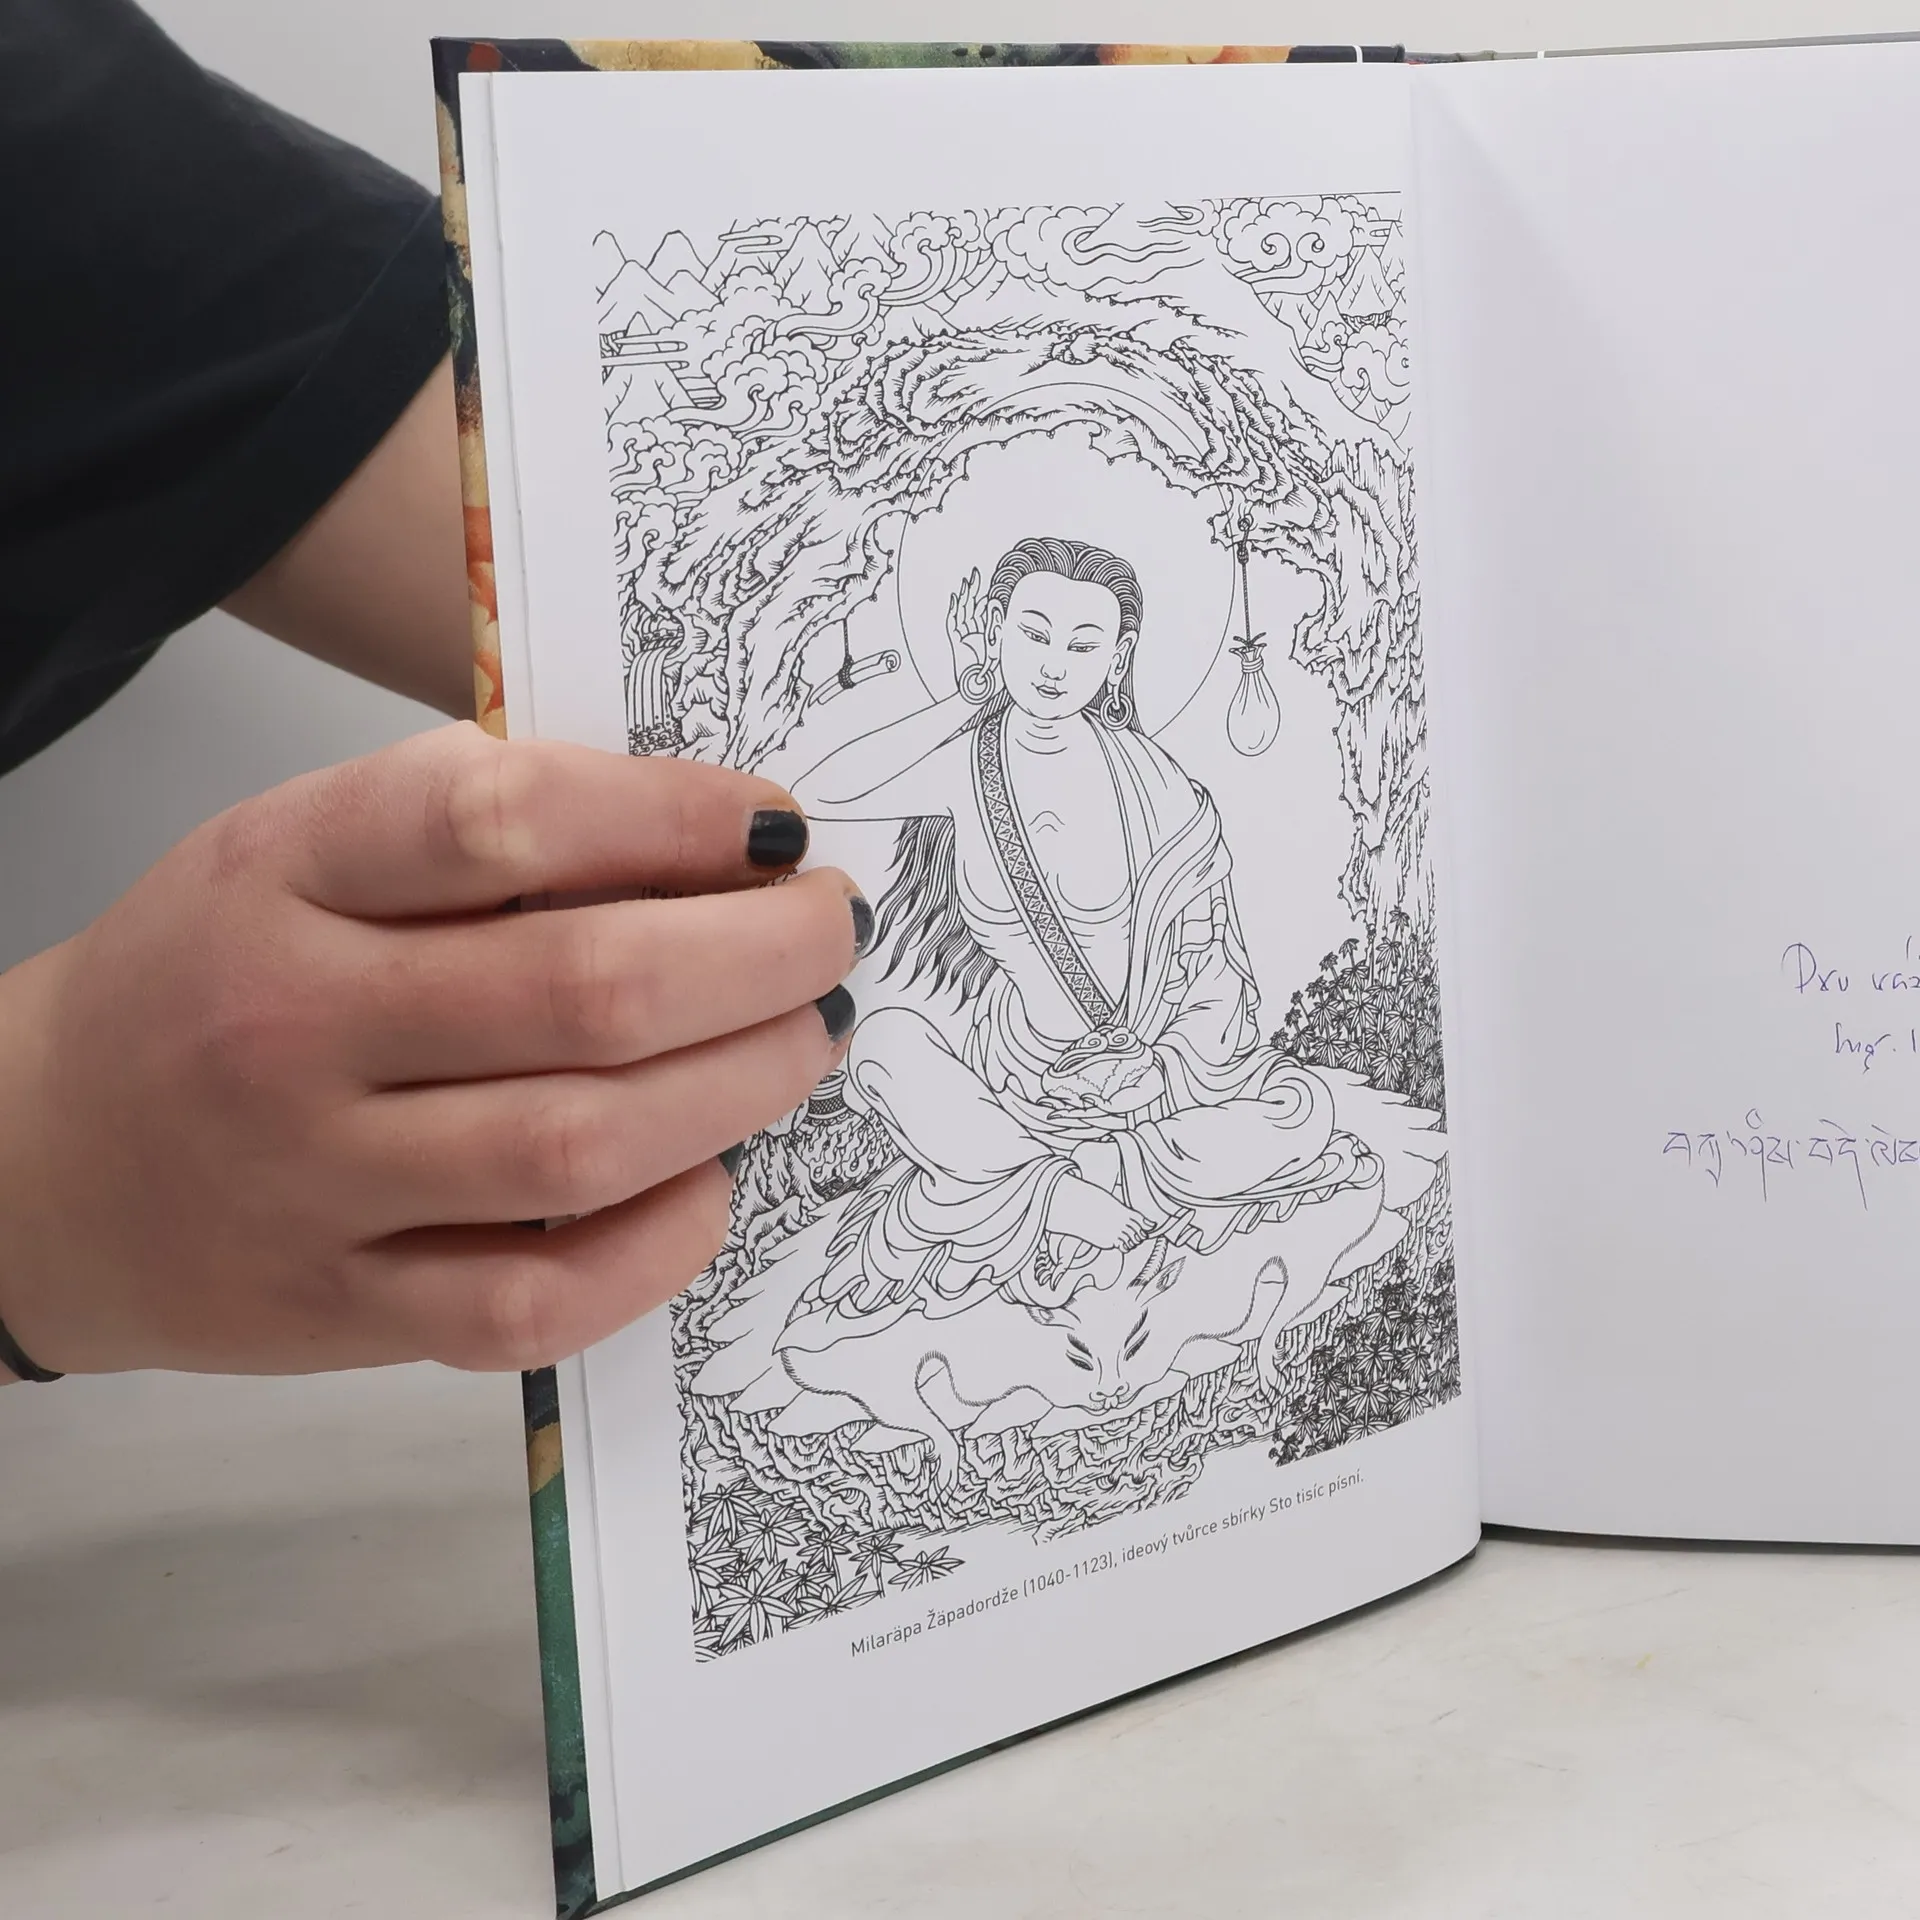 Milaräpa Žäpadordže (1040-1123), ideový tvůrce sbírky Sto tisíc písní.
Pro
Ing.
བཀྲ་ཤིས་བདེ་ལེགས